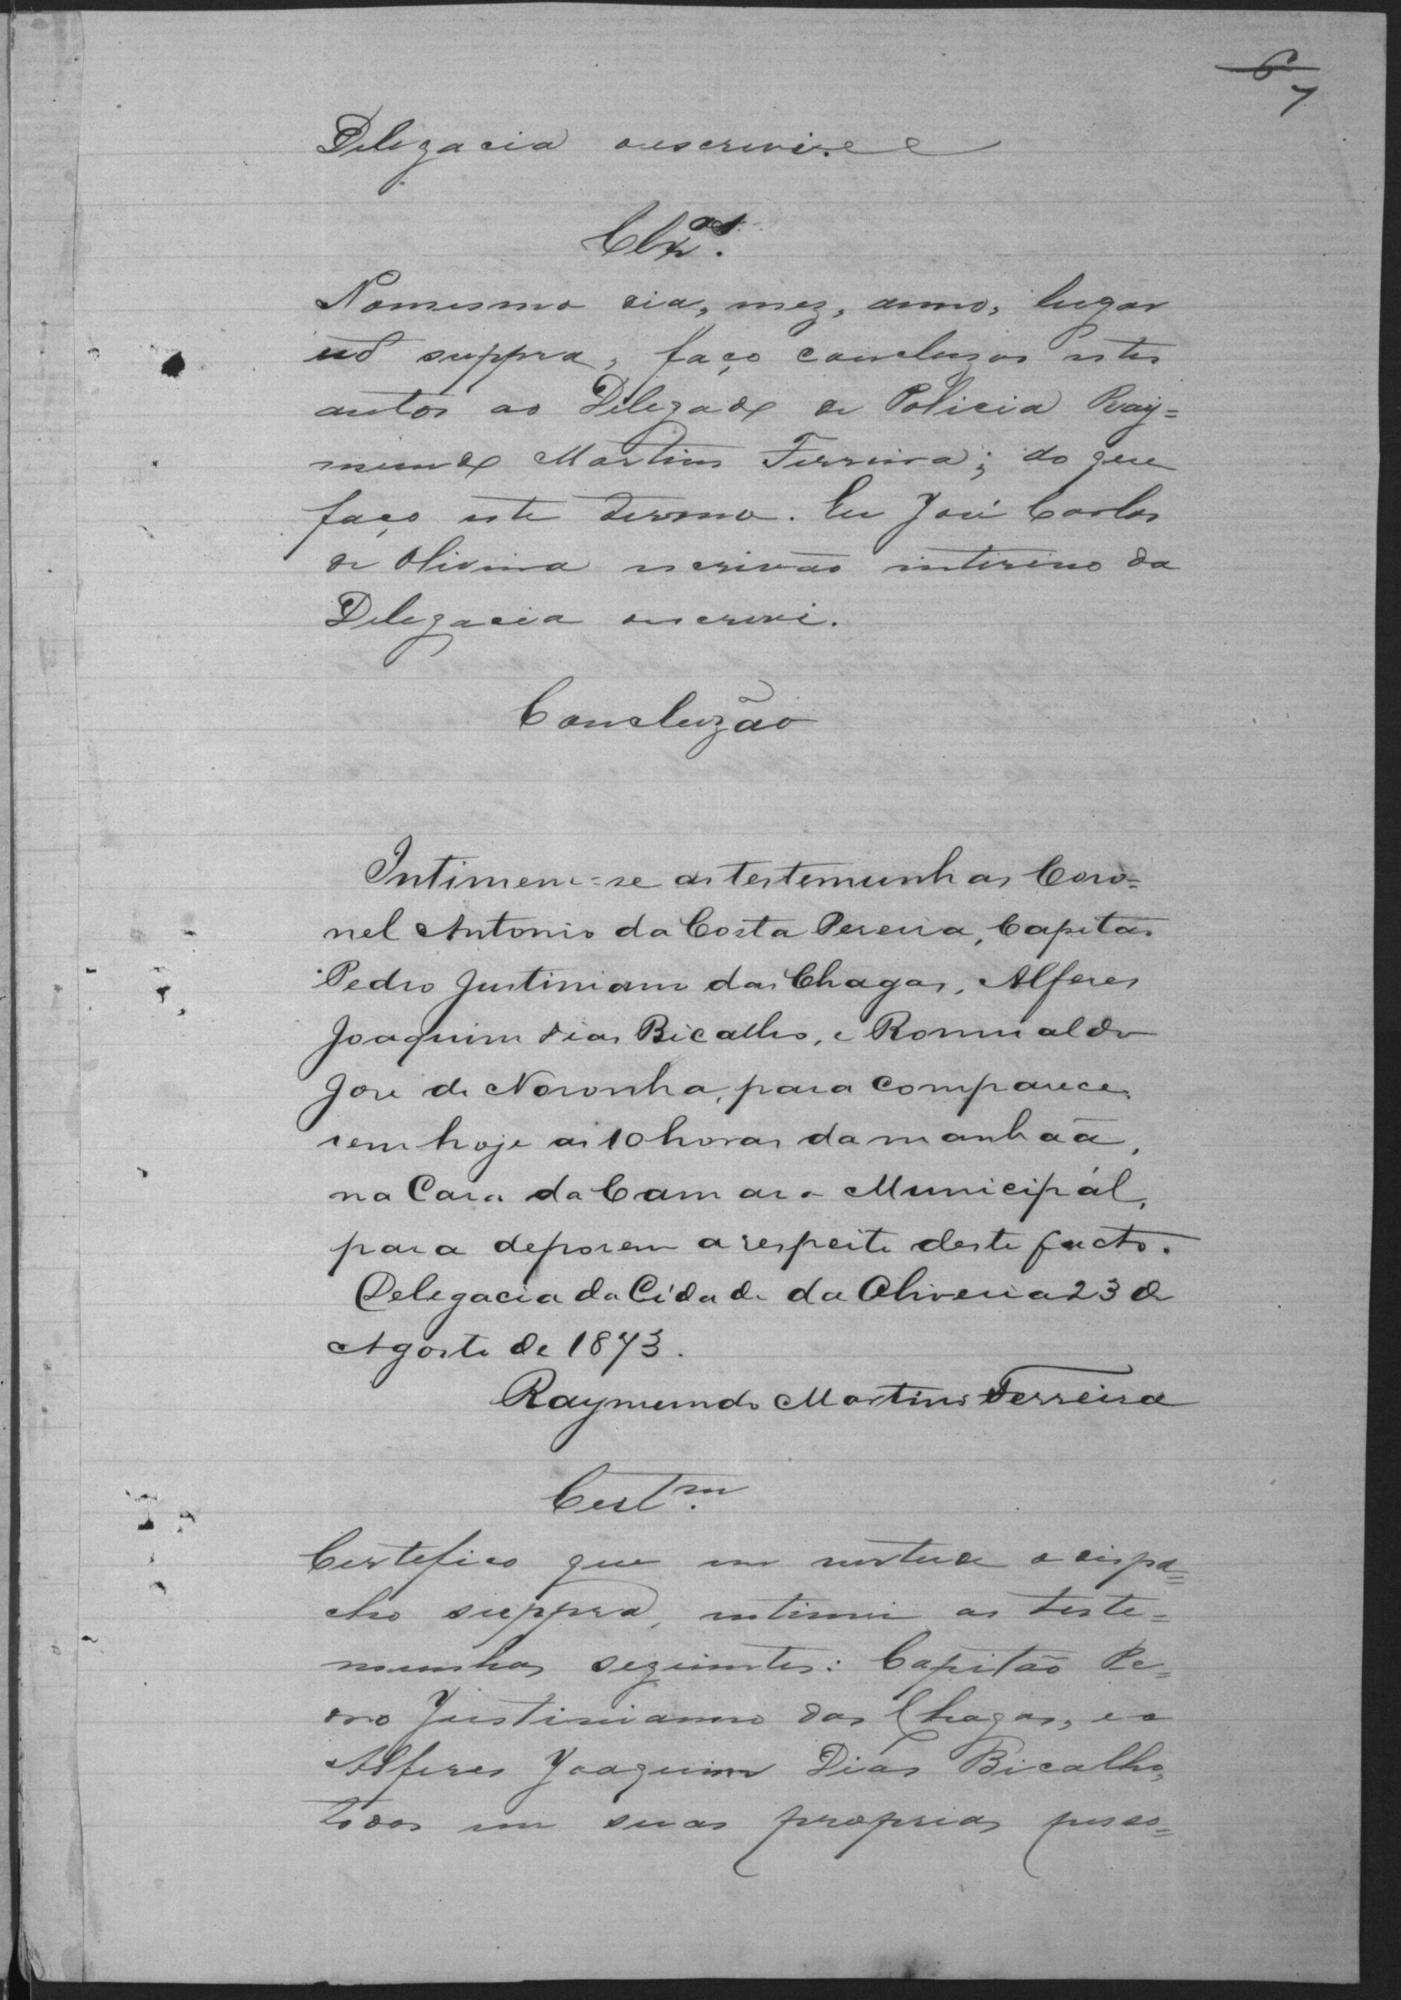 6
7
Delegacia o escrevi.
Clzos.
No mesmo dia, mez, anno, lugar
ud suppra, faço concluzos estes
autos ao Delegado de Policia Ray=
mundo Martins Ferreira; do que
faço este termo. Eu José Carlos
de Oliveira escrivão interino da
Delegacia o escrevi.
Concluzão
Intimem-se as testemunhas Coro=
nel Antonio da Costa Pereira, Capitão
Pedro Justiniano das Chagas, Alferes
Joaquim Dias Bicalho, e Romualdo
José de Noronha, para comparece
rem hoje as 10 horas da manhaã,
na Casa da Camara Municipál,
para deporem a respeito deste facto.
Delegacia da Cidade da Oliveira 23 de
Agosto de 1873.
Raymundo Martins Ferreira
Certm.
Certefico que em vertude o dispa=
cho suppra, intimei as teste=
munhas seguintes: Capitão Pe=
dro Justinianno das Chagas, e o
Alferes Joaquim Dias Bicalho,
todos em suas proprias pesso=